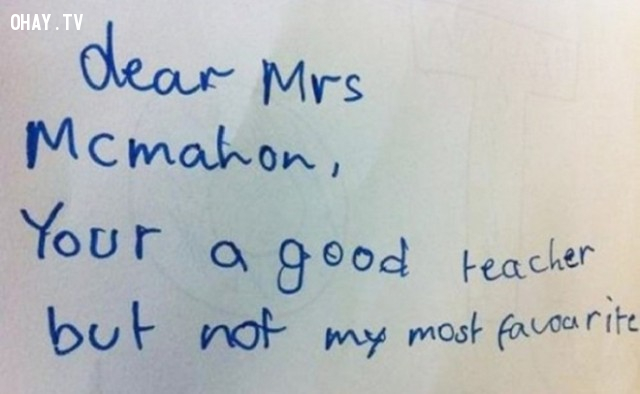 OHAY.TV
dear Mrs
Mcmahon,
Your a good teacher
but not my most favourite